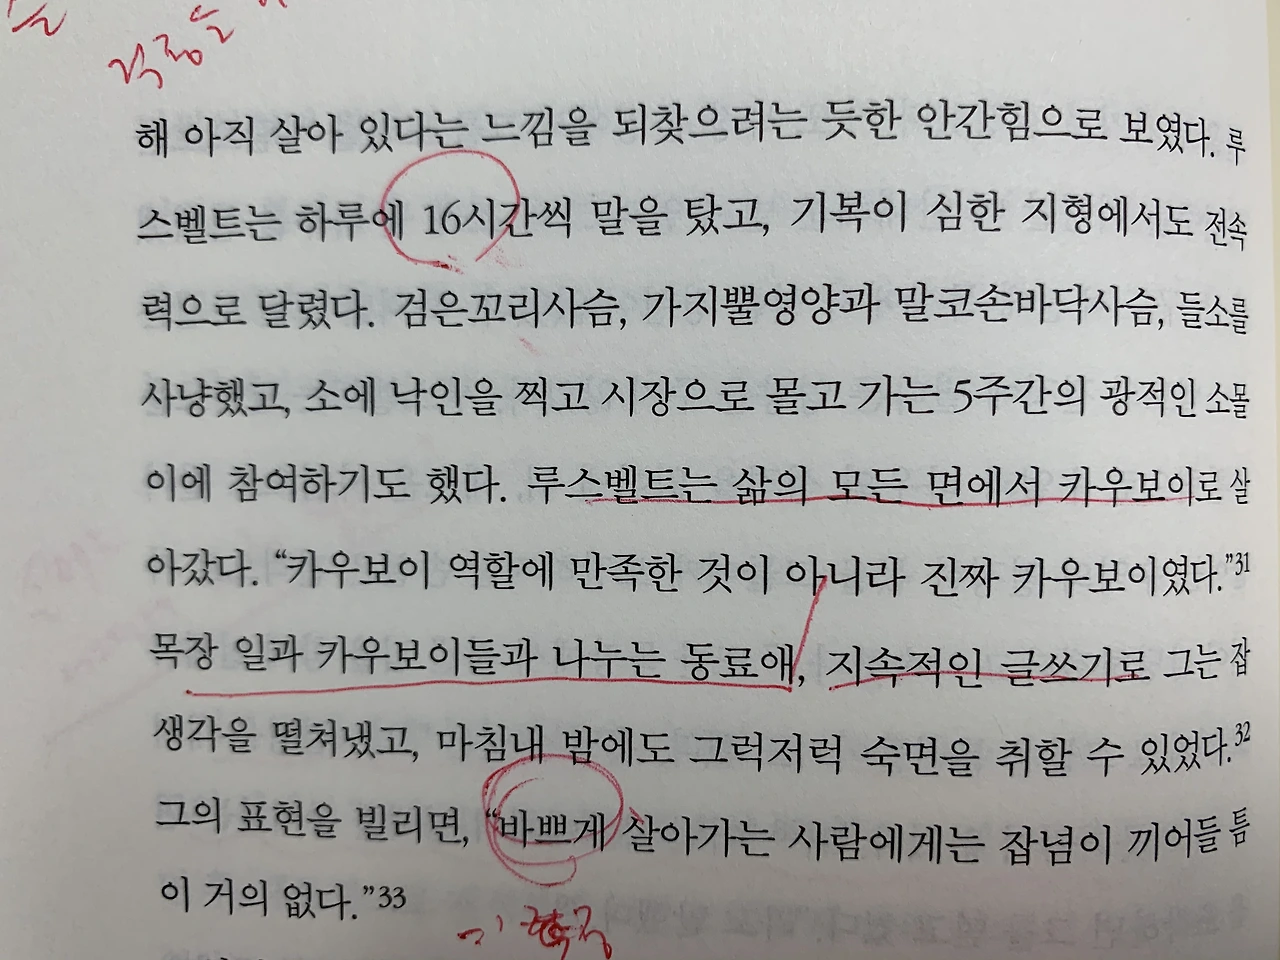 해 아직 살아 있다는 느낌을 되찾으려는 듯한 안간힘으로 보였다. 루
스벨트는 하루에 16시간씩 말을 탔고, 기복이 심한 지형에서도 전속
력으로 달렸다. 검은꼬리사슴, 가지뿔영양과 말코손바닥사슴, 들소를
사냥했고, 소에 낙인을 찍고 시장으로 몰고 가는 5주간의 광적인 소몰
이에 참여하기도 했다. 루스벨트는 삶의 모든 면에서 카우보이로 살
아갔다. “카우보이 역할에 만족한 것이 아니라 진짜 카우보이였다.”31
목장 일과 카우보이들과 나누는 동료애, 지속적인 글쓰기로 그는 잡
생각을 떨쳐냈고, 마침내 밤에도 그럭저럭 숙면을 취할 수 있었다.32
그의 표현을 빌리면, “바쁘게 살아가는 사람에게는 잡념이 끼어들 틈
이 거의 없다.”33